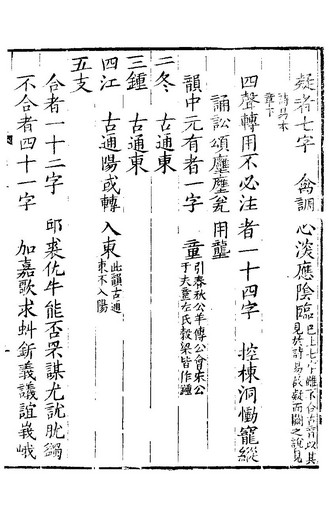 疑者七字　禽調心淡應陰臨已上七字雖不合古音以其
見於詩易故疑而闕之說見
詩易本
音下
四聲轉用不必注者一十四字　控棟洞慟寵縱
誦訟頌瓮　用壟
韻中元有者一字　童引春秋公羊傳公會宋公
于夫童左氏穀梁皆作鍾
二冬　古通東
三鍾　古通東
四江　古通陽或轉入東此韻古通
東不入陽
五支
合者一十二字　邱裘仇牛能否罘謀尤訧肬
不合者四十一字　加嘉歌求虯釿義議誼峨